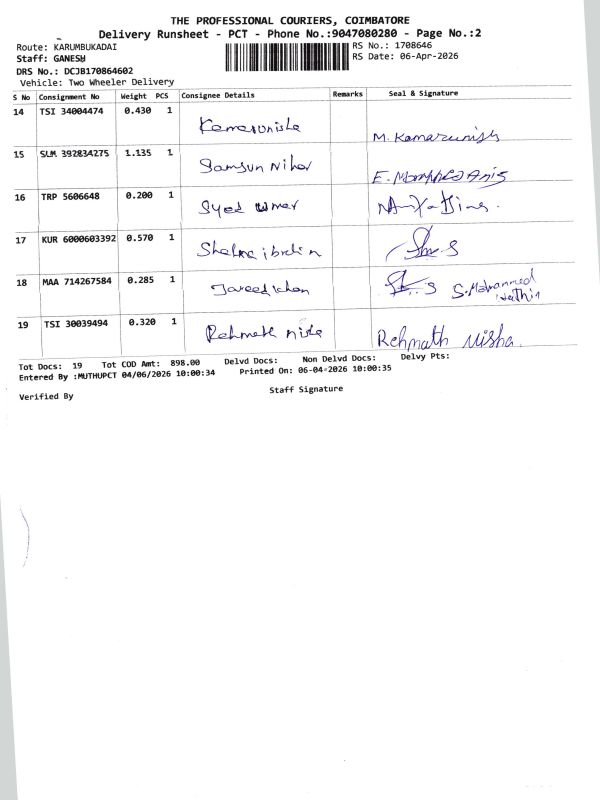 THE PROFESSIONAL COURIERS, COIMBATORE
Delivery Runsheet - PCT - Phone No.:9047080280 - Page No.:2
Route: KARUMBUKADAI
RS No.: 1708646
Staff: GANESH
RS Date: 06-Apr-2026
DRS No.: DCJB170864602
Vehicle: Two Wheeler Delivery
S No Consignment No Weight PCS Consignee Details Remarks Seal & Signature
14 TSI 34004474 0.430 1 Kamarunisha M. Kamarunish
15 SLM 392834275 1.135 1 Samsun Nihar E. Mohammed Anis
16 TRP 5606648 0.200 1 Syed umar
17 KUR 6000603392 0.570 1 Shelma ibrahim
18 MAA 714267584 0.285 1 Jareed ichan S. Mohammed
19 TSI 30039494 0.320 1 Rehmath nisha Rehmath Nisha.
Tot Docs: 19 Tot COD Amt: 898.00 Delvd Docs: Non Delvd Docs: Delvy Pts:
Entered By :MUTHUPCT 04/06/2026 10:00:34 Printed On: 06-04-2026 10:00:35
Staff Signature
Verified By